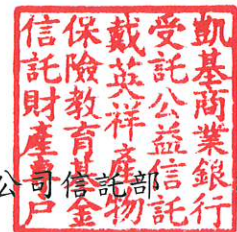 凱基商業銀行
受託公益信託
戴英祥產物
保險教育基金
信託財產專戶
公司信託部